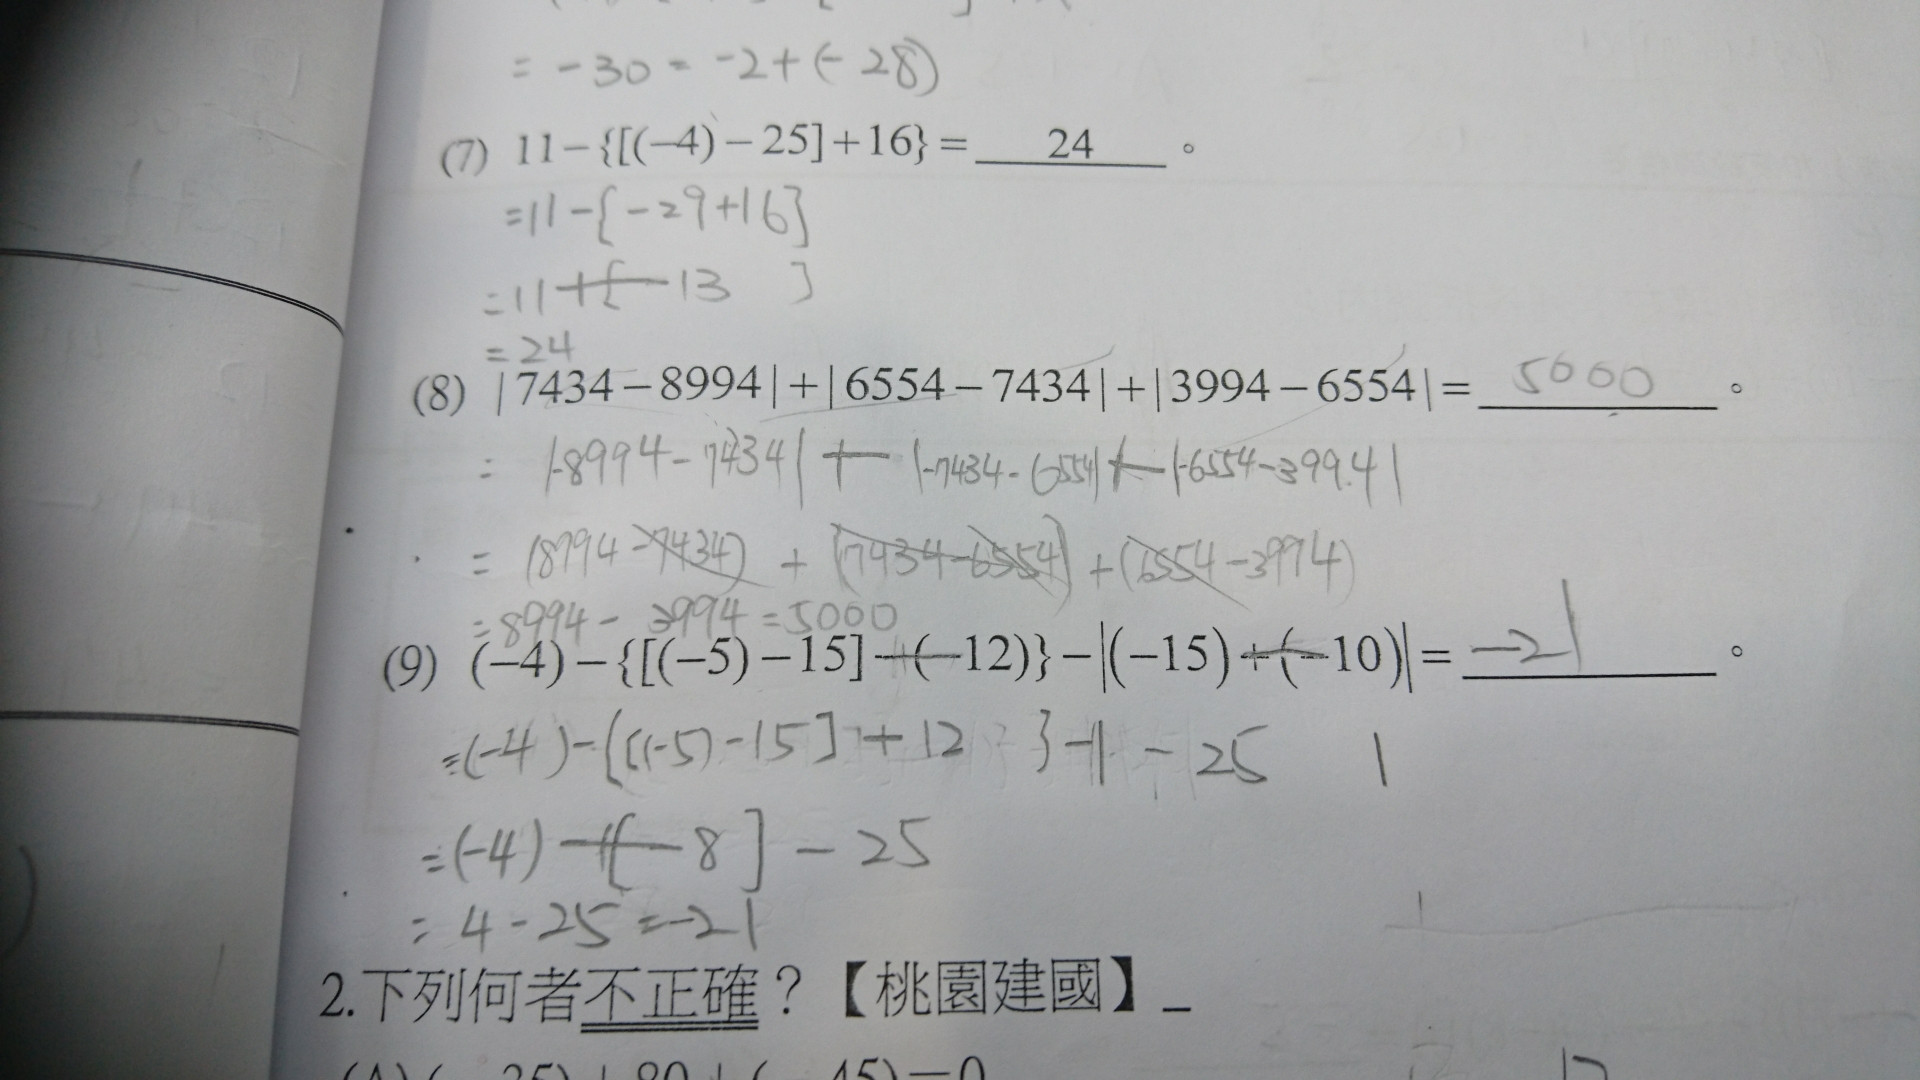 = -30 = -2+(-28)
(7) 11-{[(-4)-25]+16}= 24 。
=11-{-29+16}
=11+[-13 ]
=24
(8) |7434-8994|+|6554-7434|+|3994-6554|= 5000 。
= |-8994-7434|+|-7434-6554|+|-6554-3994|
= (8994-7434) + (7434-6554) +(6554-3994)
=8994-3994=5000
(9) (-4)-{[(-5)-15]-(-12)}-|(-15)+(-10)|= -21 。
=(-4)-{[(-5)-15]+12 }-|-25 |
=(-4)-[-8]-25
= 4-25=-21
2.下列何者不正確？【桃園建國】